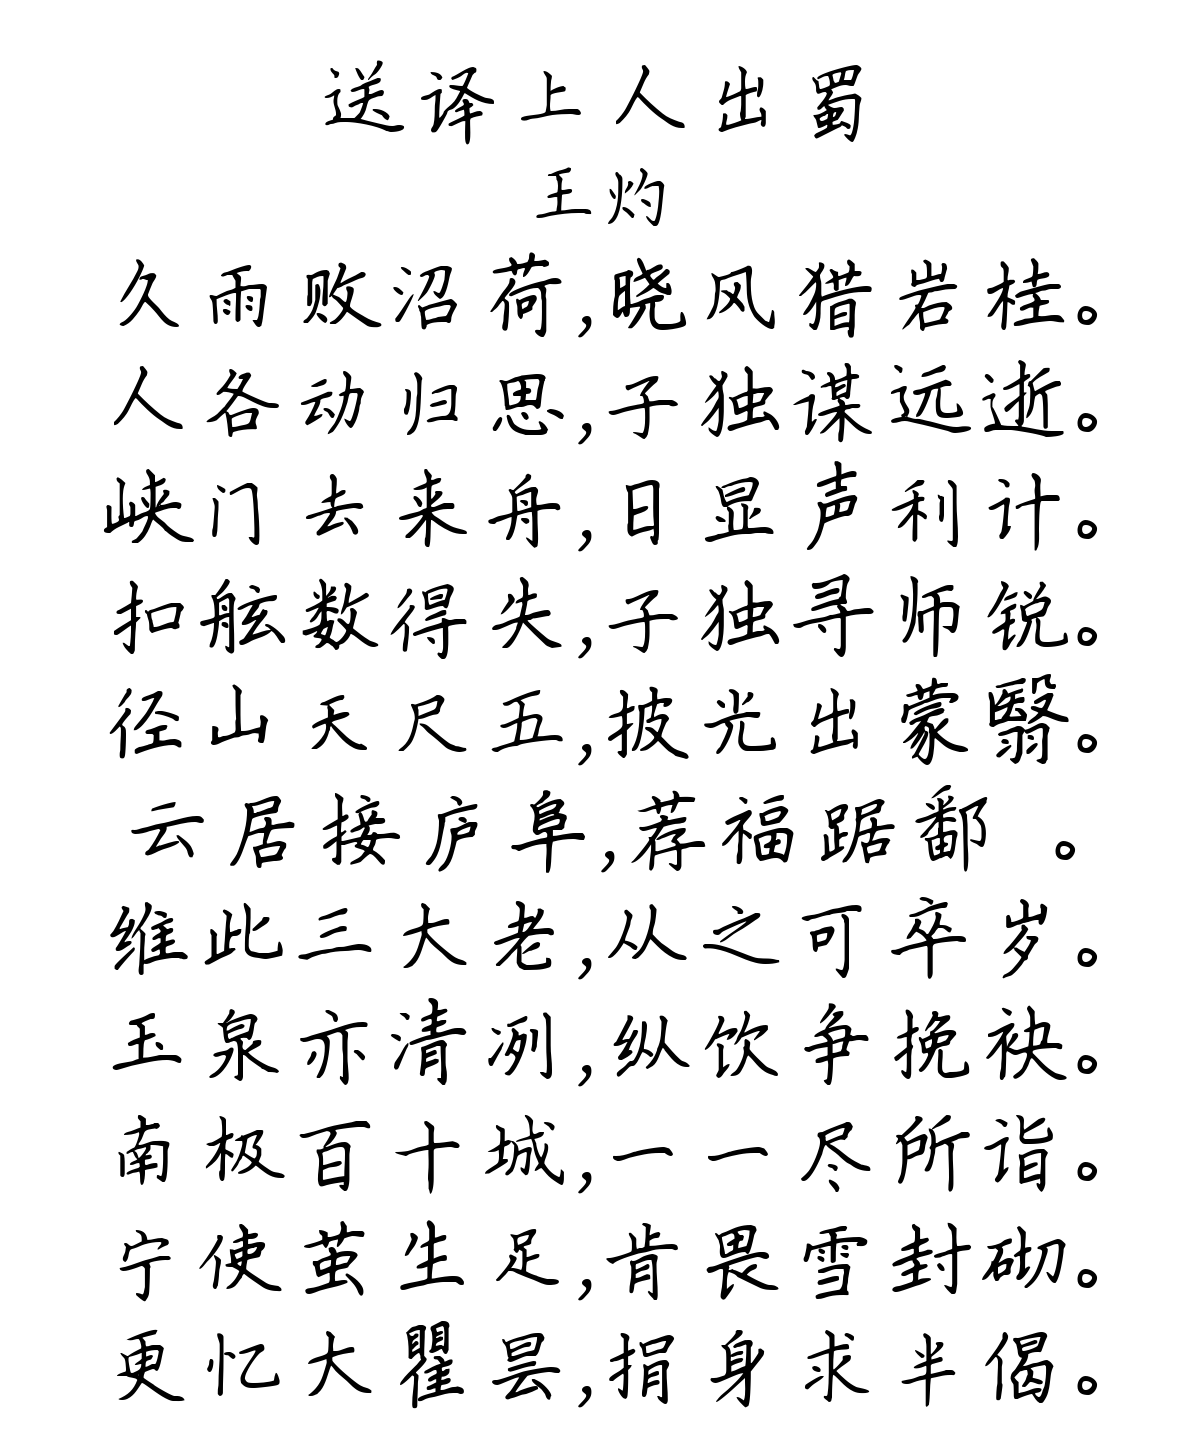 送译上人出蜀
王灼
久雨败沼荷,晓风猎岩桂。
人各动归思,子独谋远逝。
峡门去来舟,日显声利计。
扣舷数得失,子独寻师锐。
径山天尺五,披光出蒙翳。
云居接庐阜,荐福踞鄱 。
维此三大老,从之可卒岁。
玉泉亦清冽,纵饮争挽袂。
南极百十城,一一尽所诣。
宁使茧生足,肯畏雪封砌。
更忆大瞿昙,捐身求半偈。